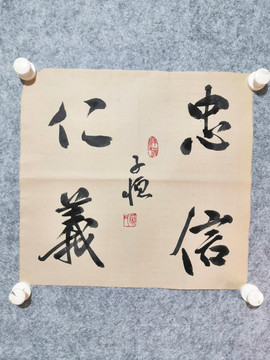 忠信
仁義
子恒